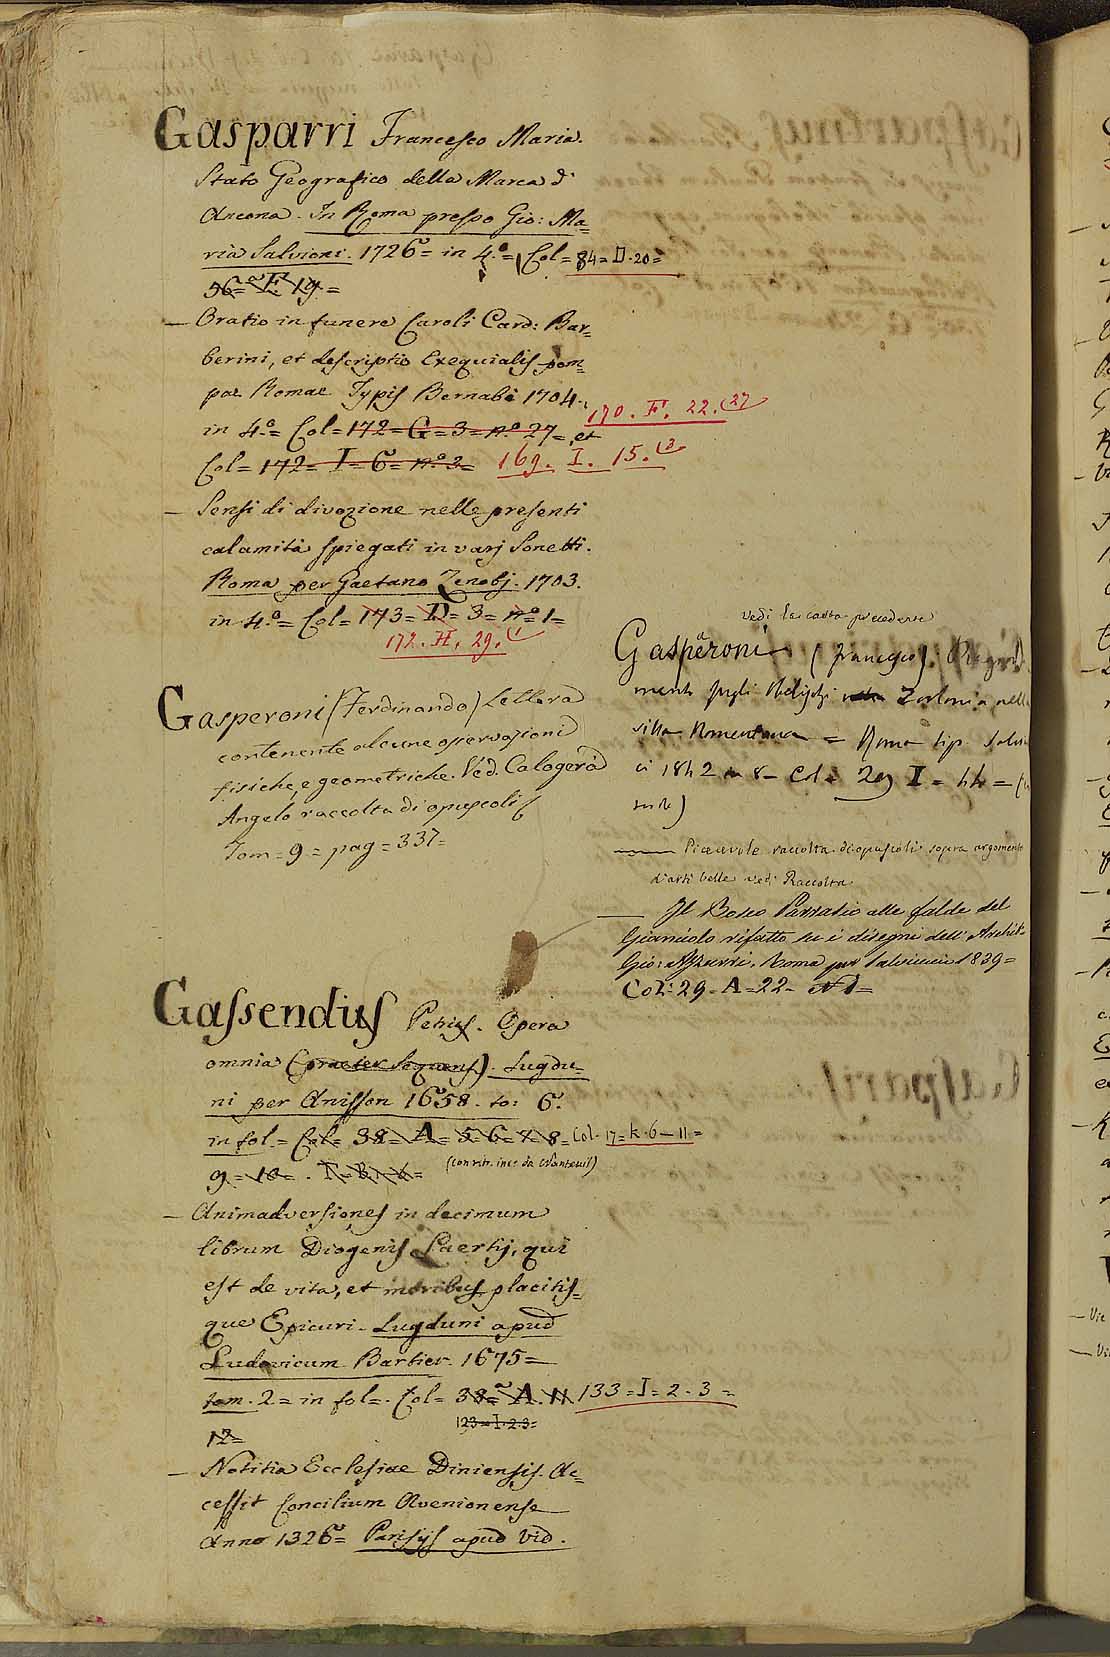 Gasparri Francesco Maria.
Stato Geografico della Marca d'
Ancona. In Roma presso Gio: Ma=
ria Salvioni. 1726= in 4.º= Col= 84=D.20=
56= F. 19=
— Oratio in funere Caroli Card: Bar=
berini, et descriptio Exequialis pom=
pae Romae Typis Bernabò 1704.
in 4.º= Col= 172=G=3=n.º 27= et
170. F. 22. (27
Col= 172= I=6=n.º 2= 169. I. 15. (2
— Sensi di divozione nelle presenti
calamità spiegati in varj Sonetti.
Roma per Gaetano Zenobj. 1703.
in 4.º= Col= 173= D= 3= n.º 1=
172. H. 29. (1
Gasperoni (Ferdinando) Lettera
contenente alcune osservazioni
fisiche, e geometriche. Ved. Calogerà
Angelo raccolta di opuscoli
Tom=9= pag=337=
Gassendius Petrus. Opera
omnia (praeter sequens). Lugdu=
ni per Anisson 1658. to: 6.
in fol= Col= 38= A= 5=6=7=8= Col. 17=k.6—11=
9=10=.
(con ritr. inc. da Nanteuil)
— Animadversiones in decimum
librum Diogenis Laertij, qui
est de vita, et moribus placitis=
que Epicuri. Lugduni apud
Ludovicum Barbier. 1675=
tom. 2= in fol=. Col= 38= A. 11 133=I=2.3=
123=I.2.3=
12=
— Notitia Ecclesiae Diniensis. Ac=
cessit Concilium Avenionense
Anno 1326= Parisijs apud Vid.
Vedi la carta precedente
Gasparoni (Francesco)
sugli Obelischi Torlonia nella
villa Nomentana = Roma tip. Salviu
ci 1842 in 8— Col= 29 I= 44=
— Piacevole raccolta di opuscoli sopra argomento
d'arti belle vedi Raccolta
— Il Bosco Parrasio alle falde del
Gianicolo rifatto su i disegni dell' Archit.
Gio: Azzurri. Roma per Salviucci 1839=
Col: 29= A=22= N 1=